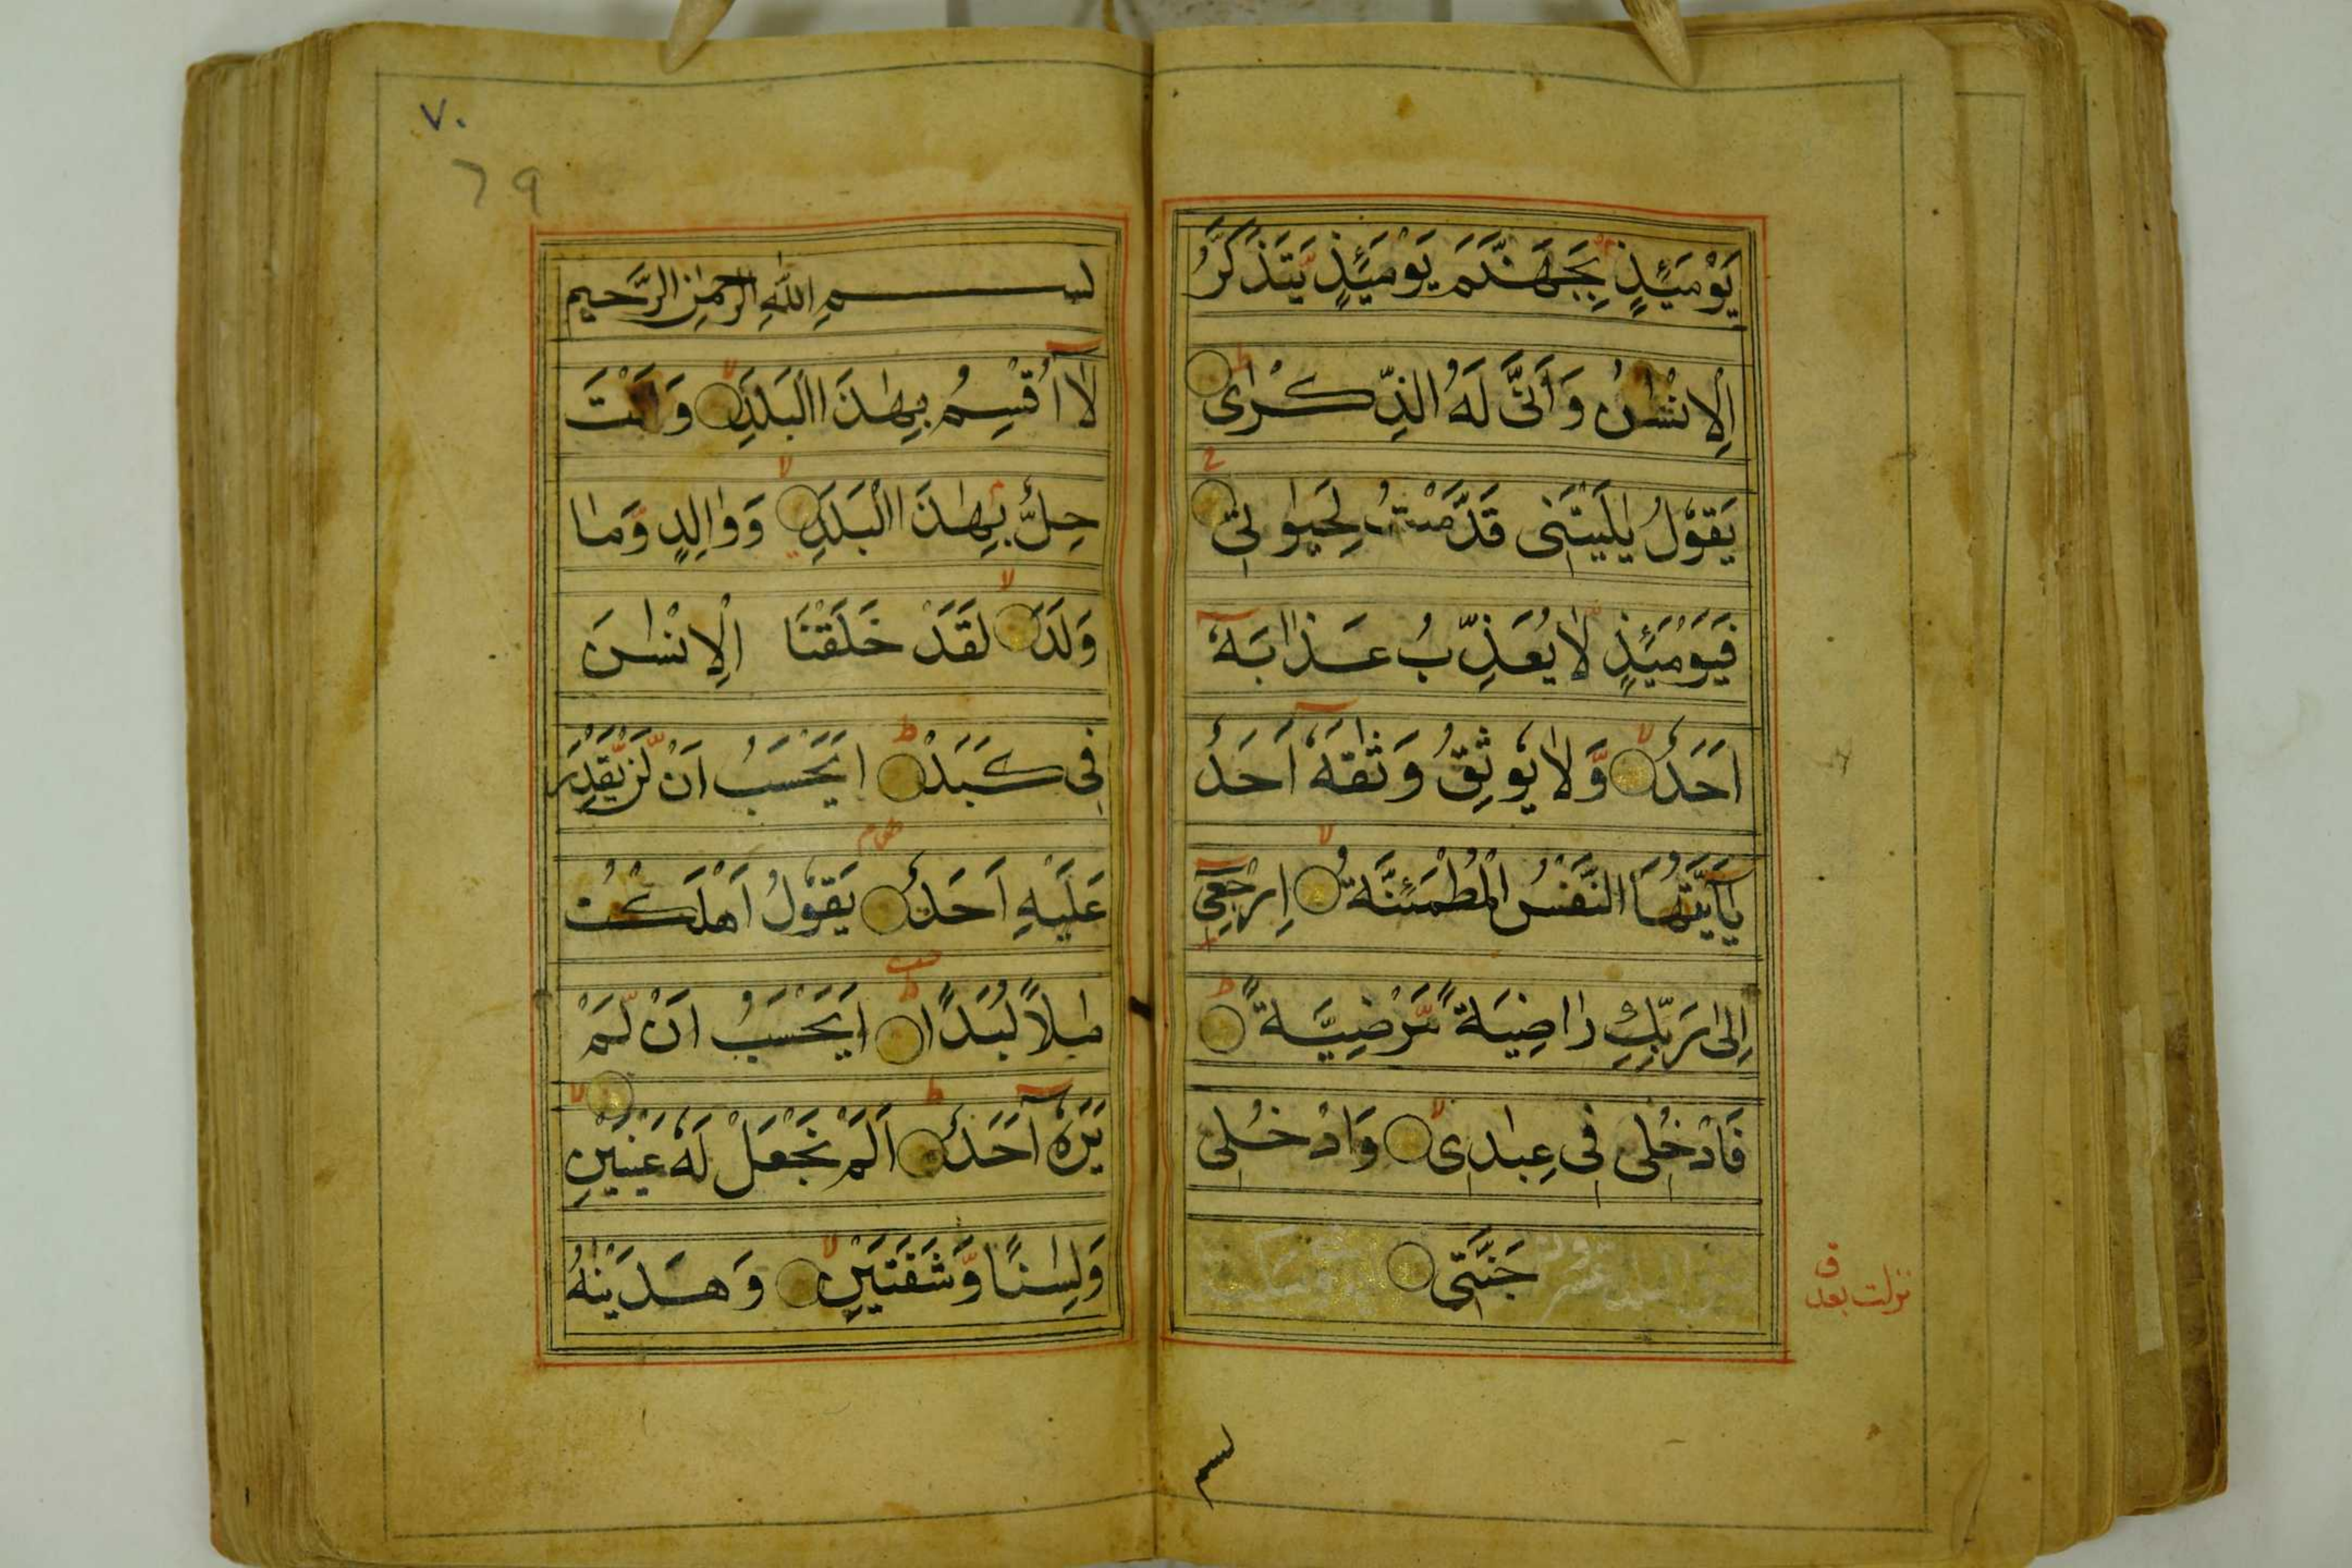 يَوْمَئِذٍ بِجَهَنَّمَ يَوْمَئِذٍ يَّتَذَكَّرُ
الْاِنْسٰنُ وَاَنّٰى لَهُ الذِّكْرٰى
يَقُوْلُ يٰلَيْتَنِى قَدَّمْتُ لِحَيٰوتِى
فَيَوْمَئِذٍ لَّا يُعَذِّبُ عَذَابَهٗٓ
اَحَدٌ وَّلَا يُوْثِقُ وَثٰقَهٗٓ اَحَدٌ
يٰٓاَيَّتُهَا النَّفْسُ الْمُطْمَئِنَّةُ اِرْجِعِىٓ
اِلٰى رَبِّكِ رَاضِيَةً مَّرْضِيَّةً
فَادْخُلِى فِى عِبٰدِى وَادْخُلِى
جَنَّتِى
نزلت بعد ق
بسم
٧٠
٦٩
بسم اللهِ الرَّحمٰنِ الرَّحيمِ
لَآ اُقْسِمُ بِهٰذَا الْبَلَدِ وَاَنْتَ
حِلٌّ بِهٰذَا الْبَلَدِ وَوَالِدٍ وَّمَا
وَلَدَ لَقَدْ خَلَقْنَا الْاِنْسٰنَ
فِى كَبَدٍ اَيَحْسَبُ اَنْ لَّنْ يَّقْدِرَ
عَلَيْهِ اَحَدٌ يَقُوْلُ اَهْلَكْتُ
مَالًا لُبَدًا اَيَحْسَبُ اَنْ لَّمْ
يَرَهٗٓ اَحَدٌ اَلَمْ نَجْعَلْ لَهٗ عَيْنَيْنِ
وَلِسٰنًا وَّشَفَتَيْنِ وَهَدَيْنٰهُ